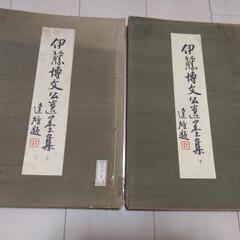 伊藤博文公遺墨集
上
達雄題
伊藤博文公遺墨集
下
達雄題